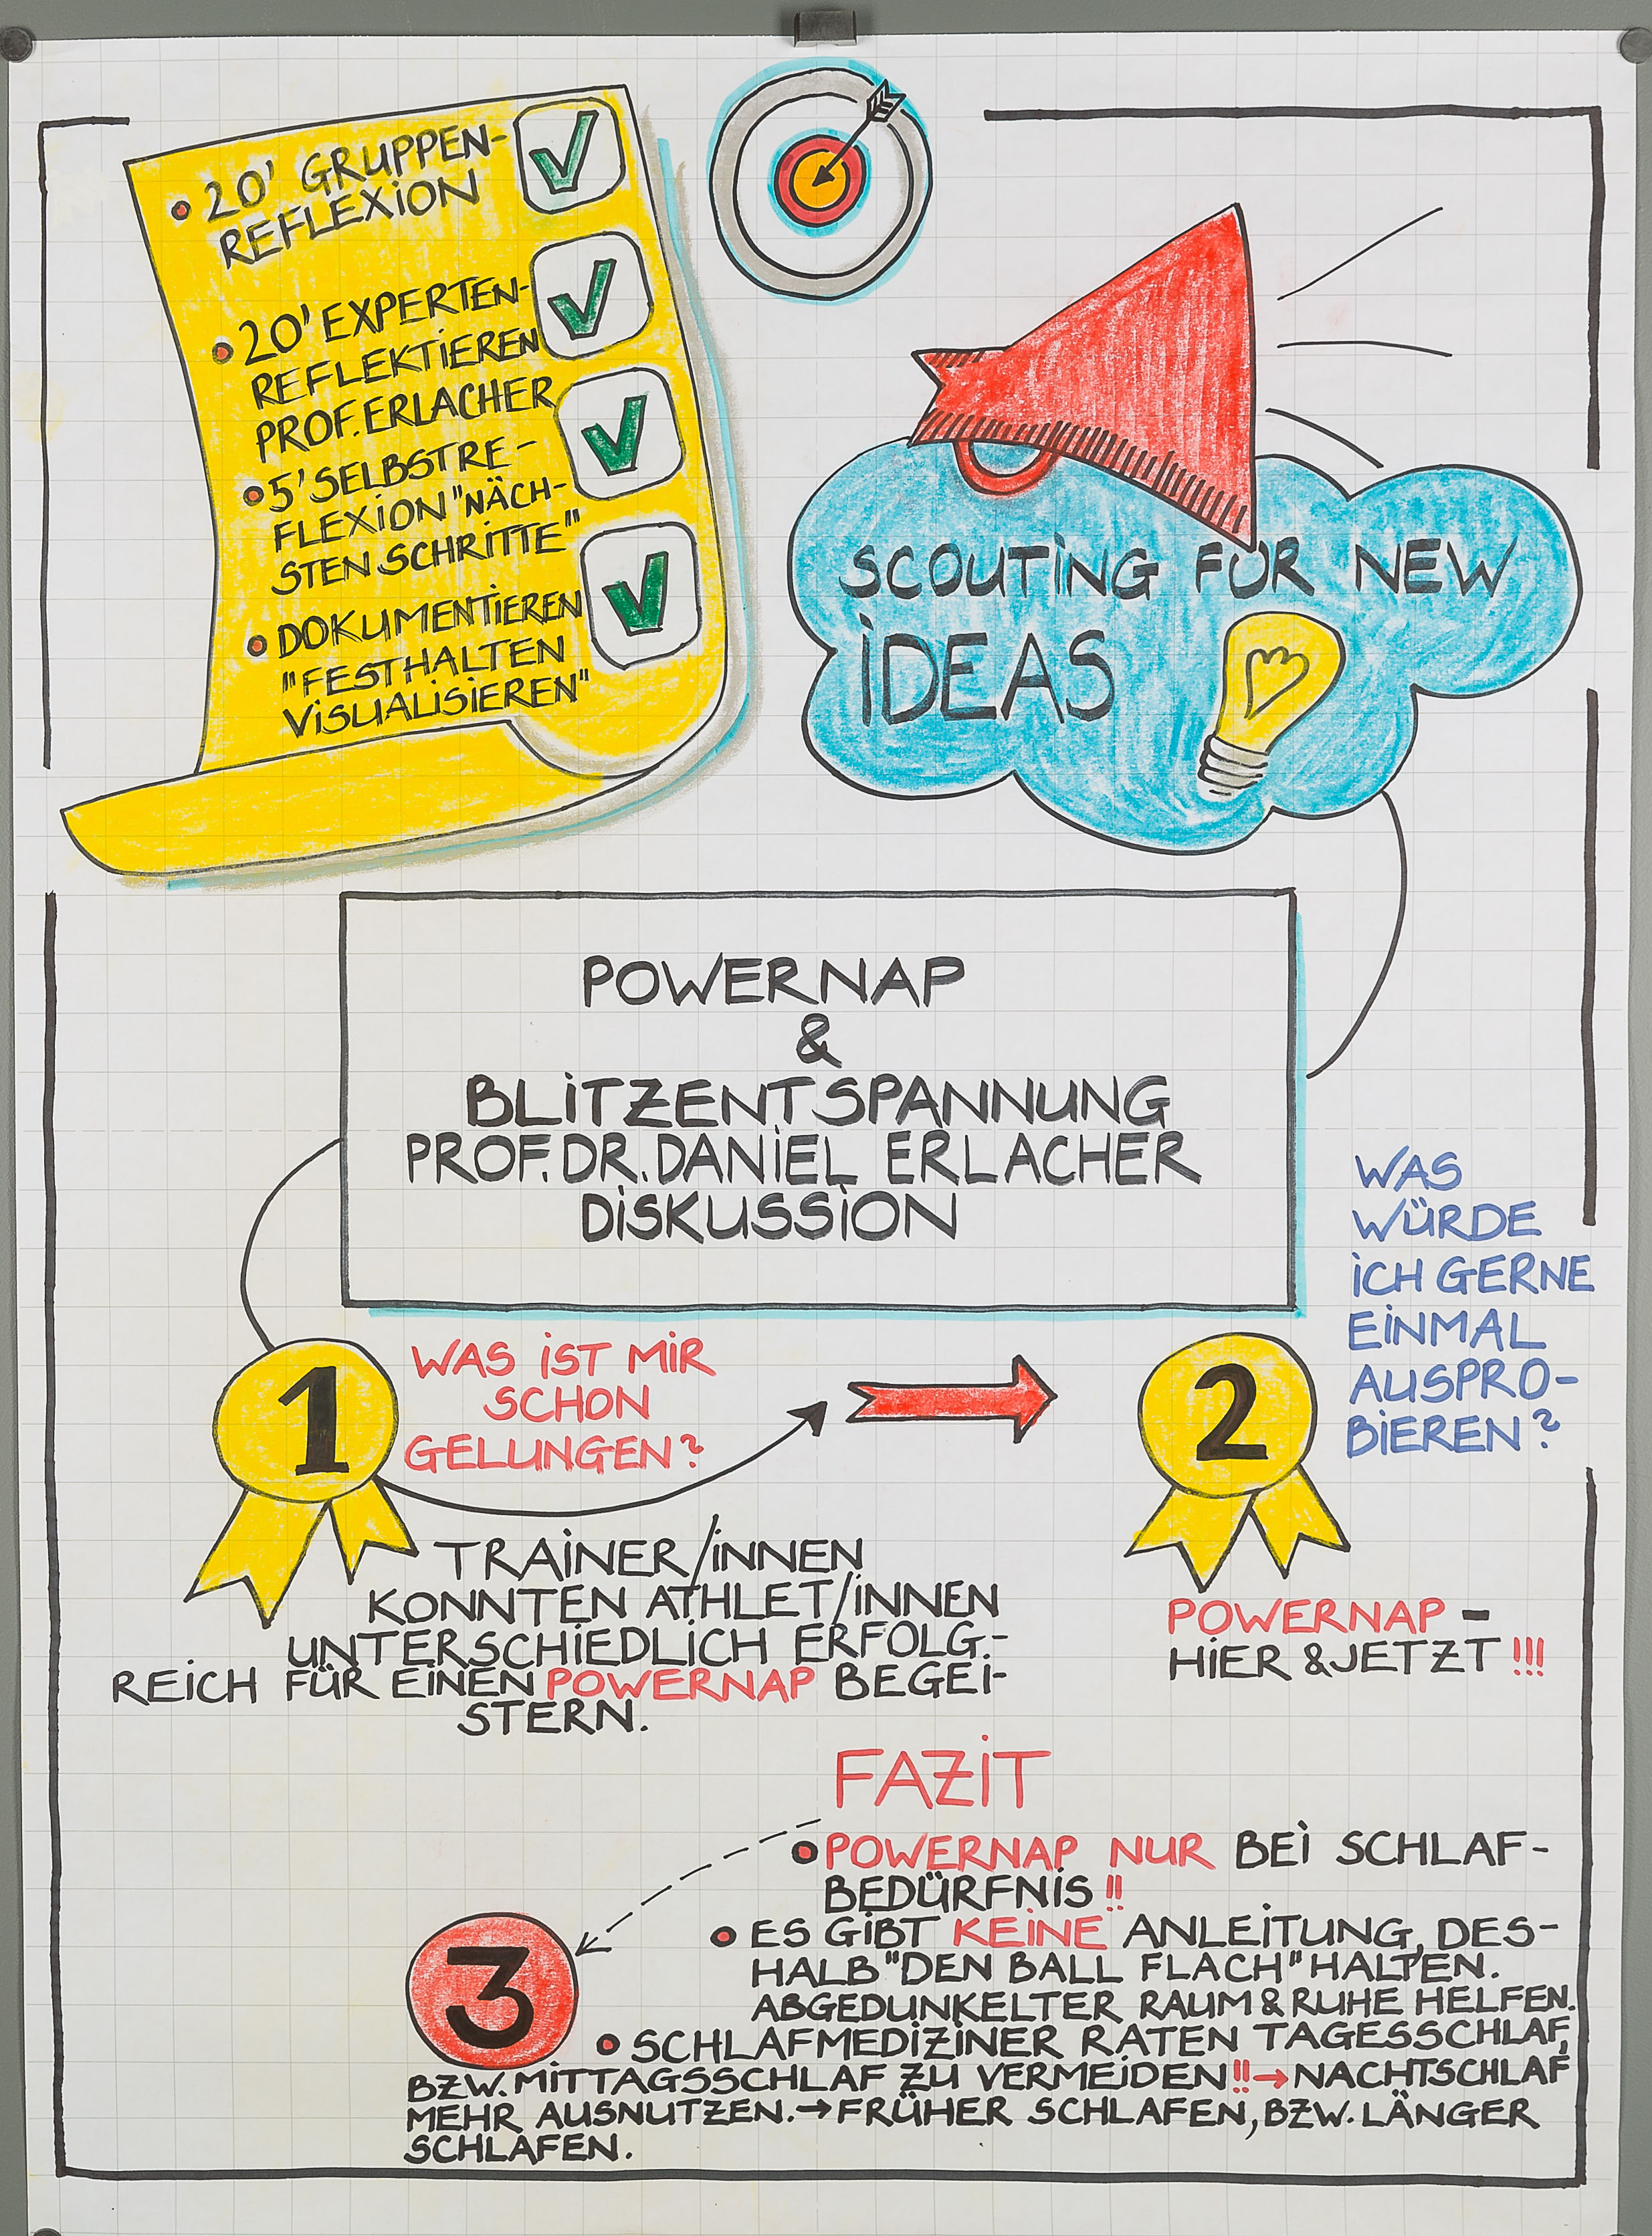 • 20' GRUPPEN-
REFLEXION
• 20' EXPERTEN-
REFLEKTIEREN
PROF. ERLACHER
• 5' SELBSTRE-
FLEXION "NÄCH-
STEN SCHRITTE"
• DOKUMENTIEREN
"FESTHALTEN
VISUALISIEREN"
SCOUTING FOR NEW
IDEAS
POWERNAP
&
BLITZENTSPANNUNG
PROF. DR. DANIEL ERLACHER
DISKUSSION
1
WAS IST MIR
SCHON
GELUNGEN?
TRAINER/INNEN
KONNTEN ATHLET/INNEN
UNTERSCHIEDLICH ERFOLG-
REICH FÜR EINEN POWERNAP BEGEI-
STERN.
2
WAS
WÜRDE
ICH GERNE
EINMAL
AUSPRO-
BIEREN?
POWERNAP -
HIER & JETZT !!!
FAZIT
3
• POWERNAP NUR BEI SCHLAF-
BEDÜRFNIS !!
• ES GIBT KEINE ANLEITUNG, DES-
HALB "DEN BALL FLACH" HALTEN.
ABGEDUNKELTER RAUM & RUHE HELFEN.
• SCHLAFMEDIZINER RATEN TAGESSCHLAF,
BZW. MITTAGSSCHLAF ZU VERMEIDEN !! → NACHTSCHLAF
MEHR AUSNUTZEN. → FRÜHER SCHLAFEN, BZW. LÄNGER
SCHLAFEN.